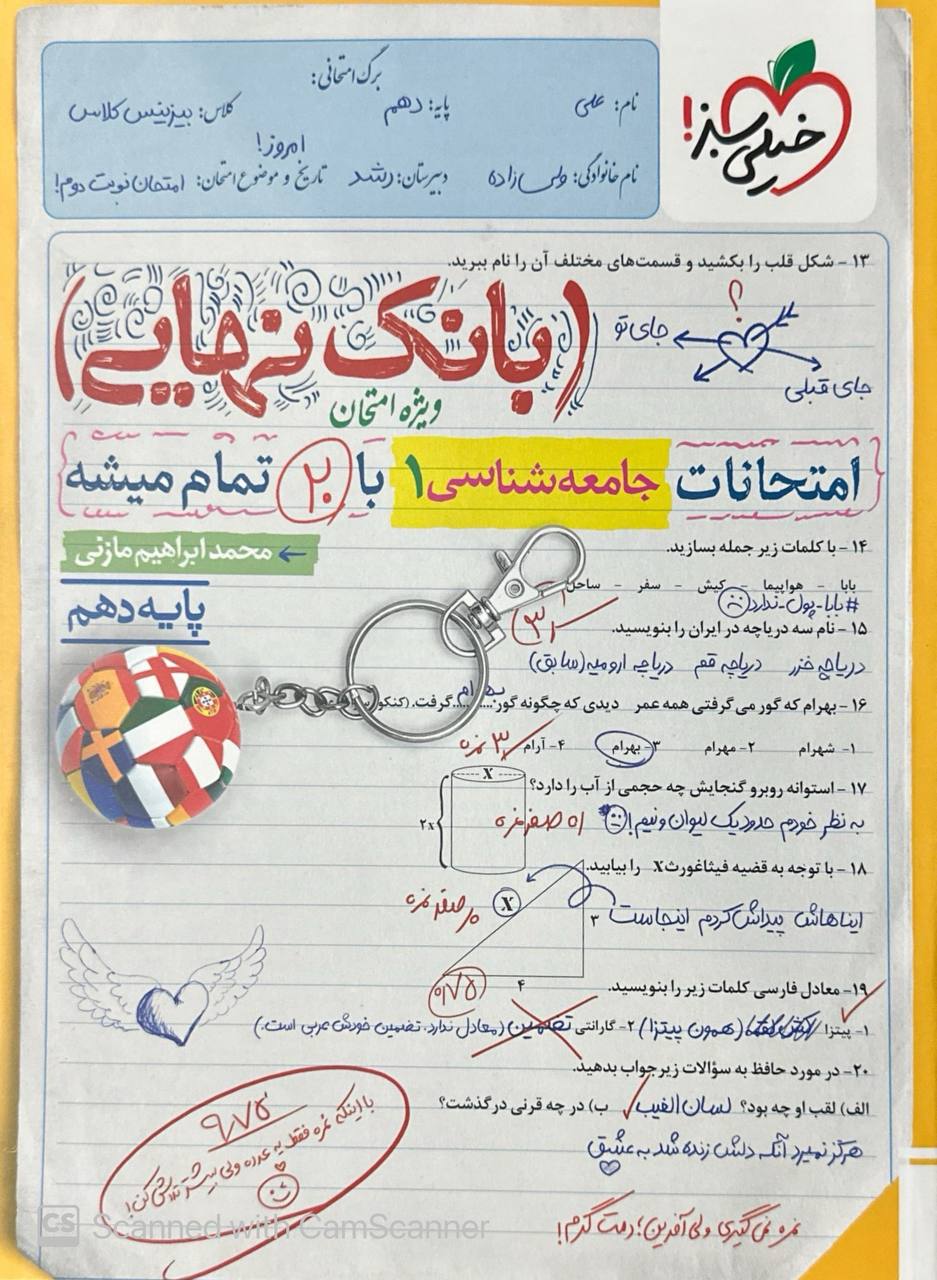 خیلی سبز!
برگ امتحانی:
نام: علی
پایه: دهم
کلاس: بیزینس کلاس
نام خانوادگی: ولی زاده
دبیرستان: رشد
تاریخ و موضوع امتحان: امروز! امتحان نوبت دوم!
۱۳- شکل قلب را بکشید و قسمت‌های مختلف آن را نام ببرید.
؟
جای تو
جای قبلی
(بانک نهایی)
ویژه امتحان
امتحانات جامعه‌شناسی ۱ با ۲۰ تمام میشه
← محمد ابراهیم مازنی
پایه دهم
۱۴- با کلمات زیر جمله بسازید.
بابا - هواپیما - کیش - سفر - ساحل
#بابا-پول-ندارد
۱۵- نام سه دریاچه در ایران را بنویسید.
دریاچه خزر دریاچه قم دریاچه ارومیه (سابق)
۱۶- بهرام که گور می‌گرفتی همه عمر دیدی که چگونه گور ....بهرام.... گرفت.
۱- شهرام ۲- مهرام ۳- بهرام ۴- آرام
۳ نمره
۱۷- استوانه روبرو گنجایش چه حجمی از آب را دارد؟
X
۲x
به نظر خودم حدود یک لیوان و نیم!
اه صفر نمره
۱۸- با توجه به قضیه فیثاغورث X را بیابید.
ایناهاش پیداش کردم اینجاست
X
۳
۴
صفر نمره
۰/۷۵
۱۹- معادل فارسی کلمات زیر را بنویسید.
۱- پیتزا (همون پیتزا) ۲- گارانتی تضمین (معادل ندارد. تضمین خودش عربی است.)
۲۰- در مورد حافظ به سؤالات زیر جواب بدهید.
الف) لقب او چه بود؟ لسان الغیب ب) در چه قرنی درگذشت؟
هرگز نمیرد آنکه دلش زنده شد به عشق
۹/۷۵
با اینکه نمره فقط یه عدده ولی بیشتر تلاش کن!
نمره نمی‌گیری ولی آفرین؛ دمت گرم!
CS Scanned with CamScanner